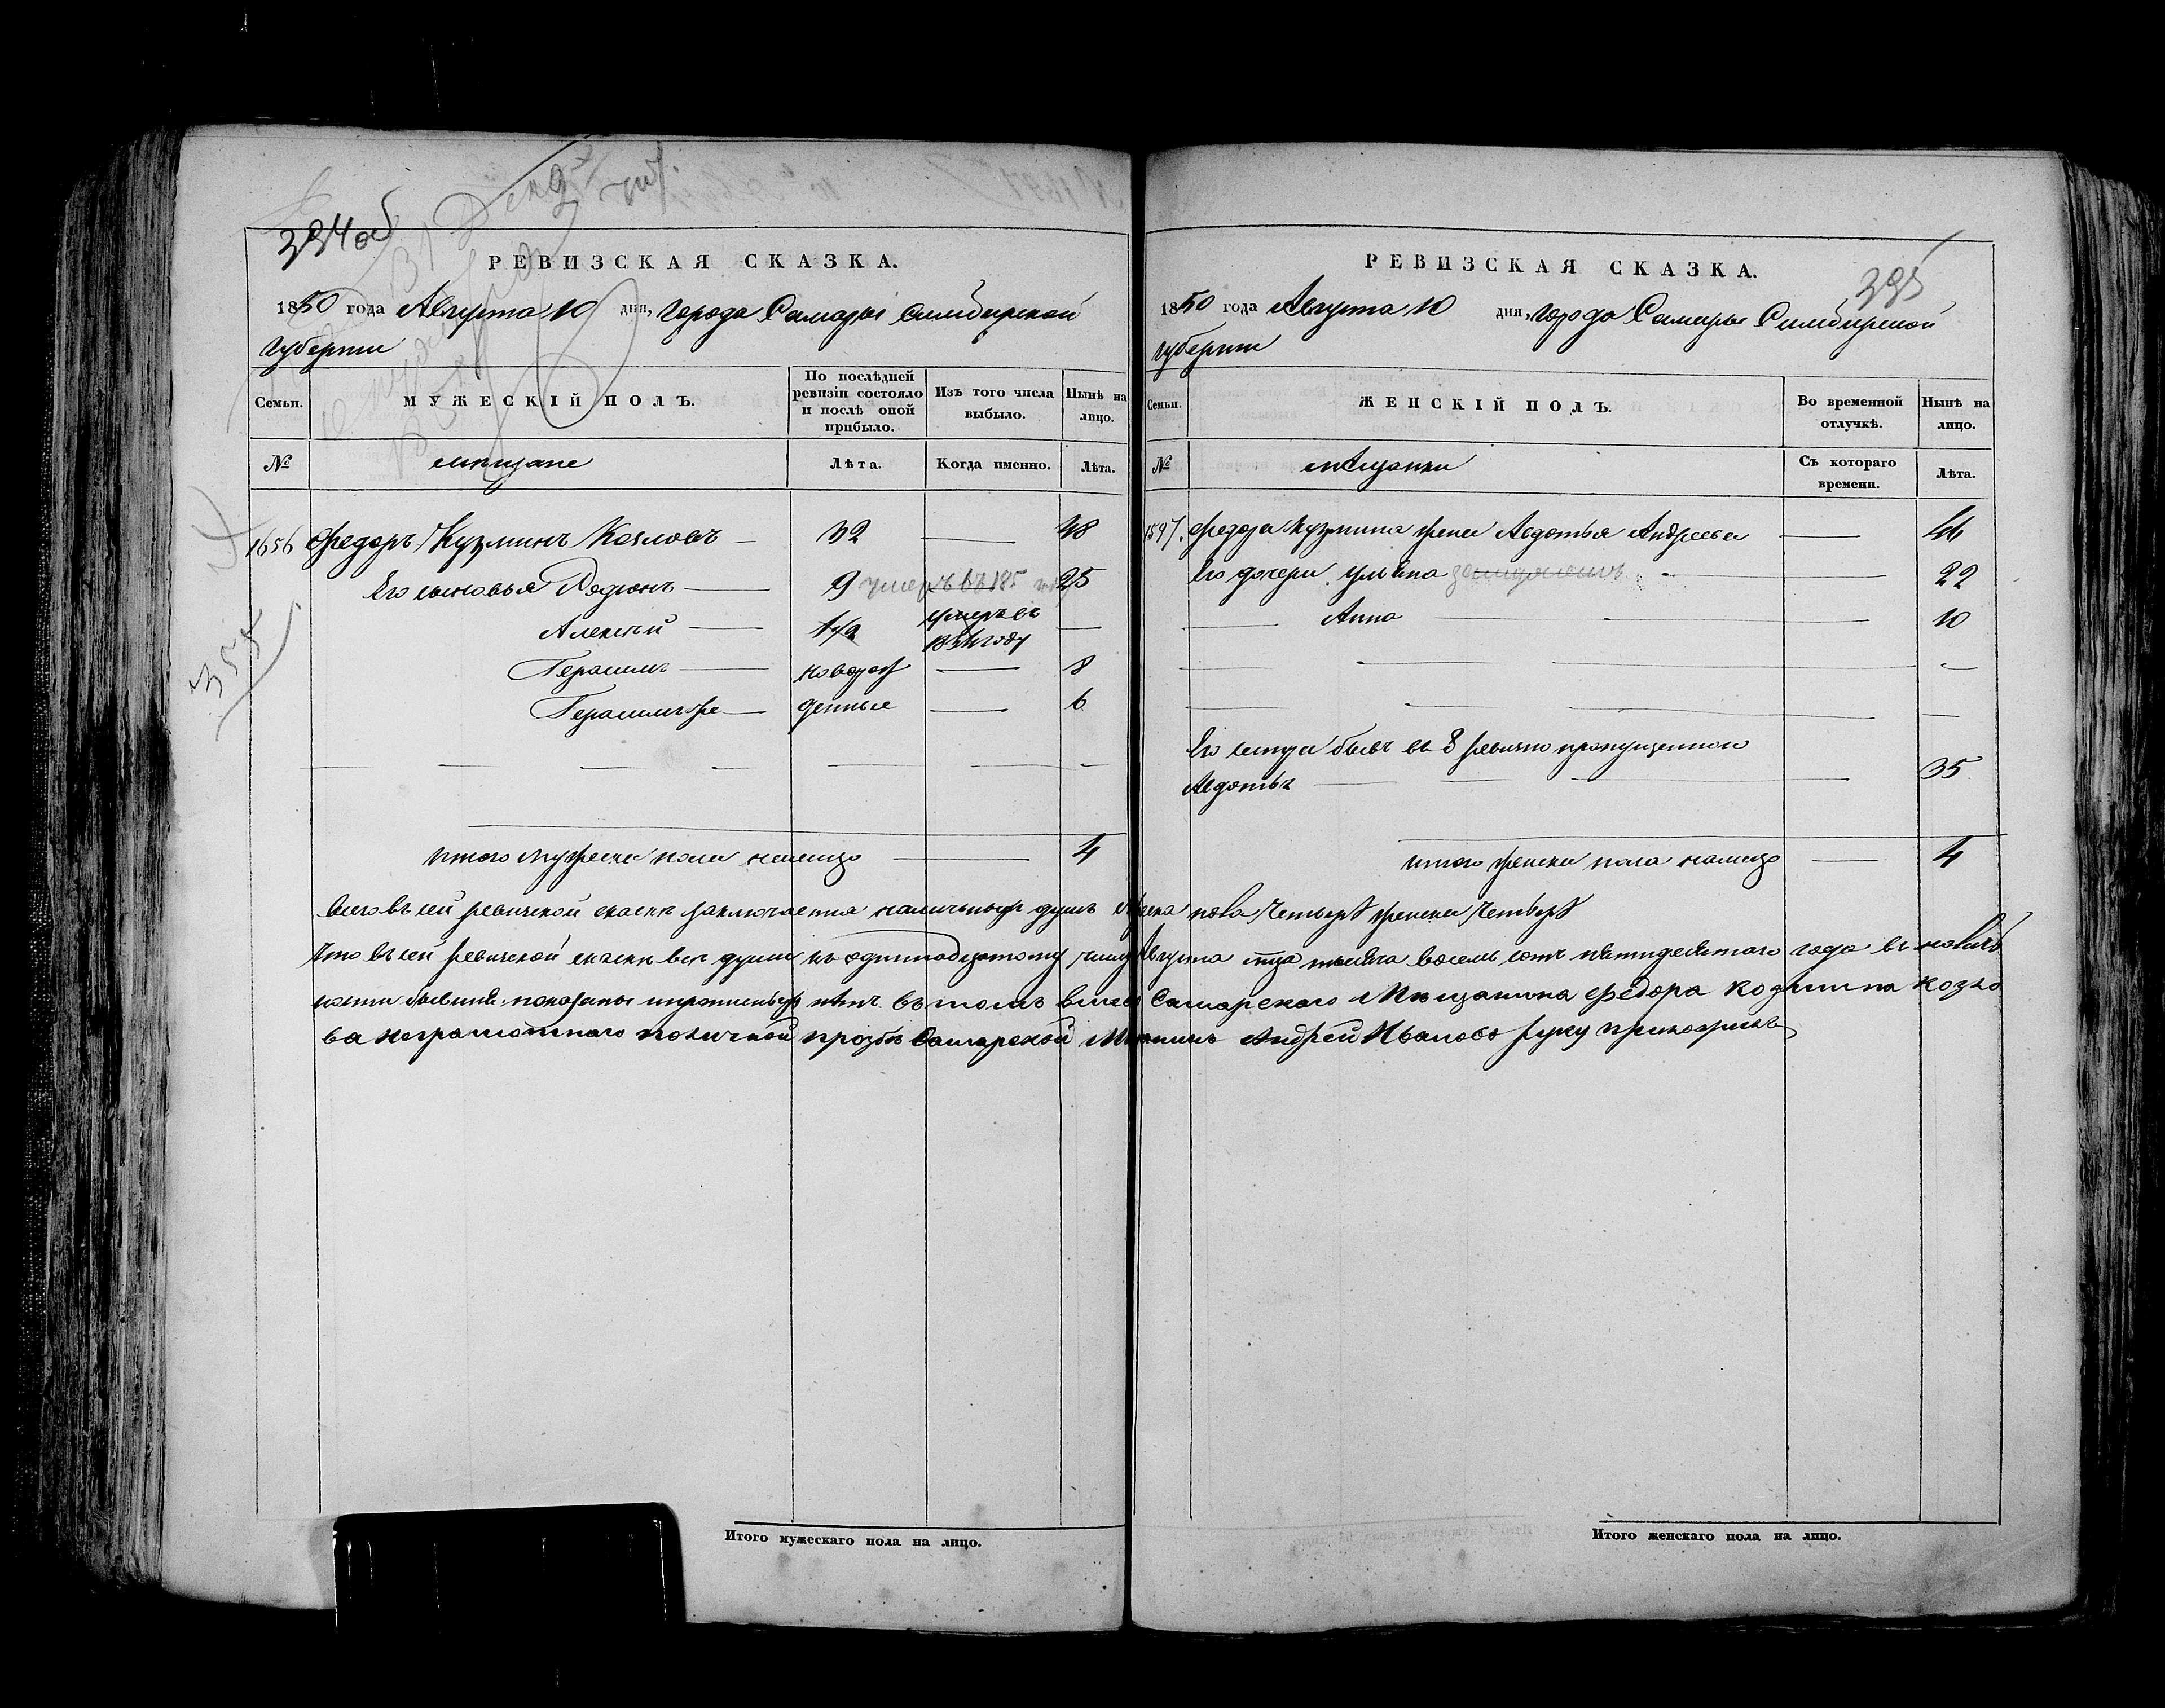 394об
РЕВИЗСКАЯ СКАЗКА.
1850 года Августа 10 дня, города Самары Симбирской
губернии
Семьи.
МУЖЕСКІЙ ПОЛЪ.
По послѣдней ревизіи состояло и послѣ оной прибыло.
Изъ того числа выбыло.
Нынѣ на лицо.
№
мещане
Лѣта.
Когда именно.
Лѣта.
1656 Федоръ Кузминъ Козловъ 32 48
Его сыновья Родіонъ 9 умеръ въ 185 25
Алексѣй 1/2 умеръ въ
году
Герасимъ новорож 8
Герасимъ же денные 6
итого мужеска пола налицо 4
355
395
РЕВИЗСКАЯ СКАЗКА.
1850 года Августа 10 дня, города Самары Симбирской
губернии
Семьи.
ЖЕНСКІЙ ПОЛЪ.
Во временной отлучкѣ.
Нынѣ на лицо.
№
мещанки
Съ котораго времени.
Лѣта.
1597. Федора Кузмина жена Авдотья Андреева 46
Его дочери Ульяна 22
Анна 10
Его сестра бывъ въ 8 ревизию пропущенною
Авдотья 35
итого женска пола налицо 4
Всего въ сей ревизской скаскѣ заключается наличныхъ душъ мужска пола четыре женска четыре
Что въ сей ревизской скаскѣ все души къ одинадцатому числу Августа тысяча восемь сотъ пятидесятаго года въ налич
ности бывшія показаны и прописныхъ нѣтъ въ томъ вместо Самарскаго Мещанина Федора Козмина Козло
ва неграмотнаго поличной прозбе Самарской Мещанинъ Андрей Ивановъ руку приложилъ
Итого мужескаго пола на лицо.
Итого женскаго пола на лицо.